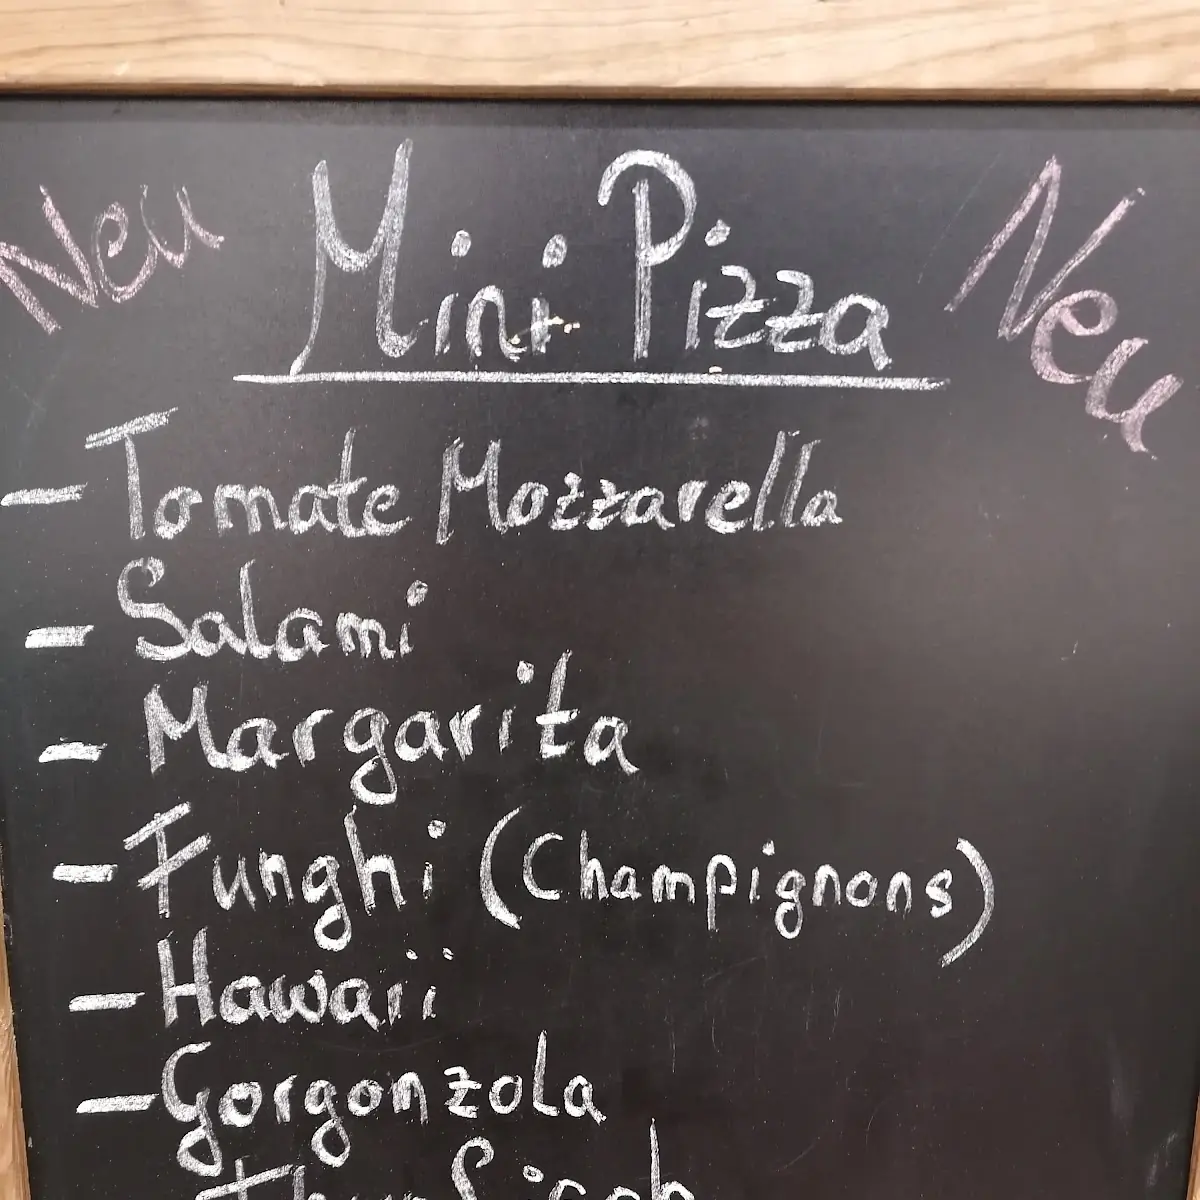 Neu Mini Pizza Neu
- Tomate Mozzarella
- Salami
- Margarita
- Funghi (Champignons)
- Hawaii
- Gorgonzola